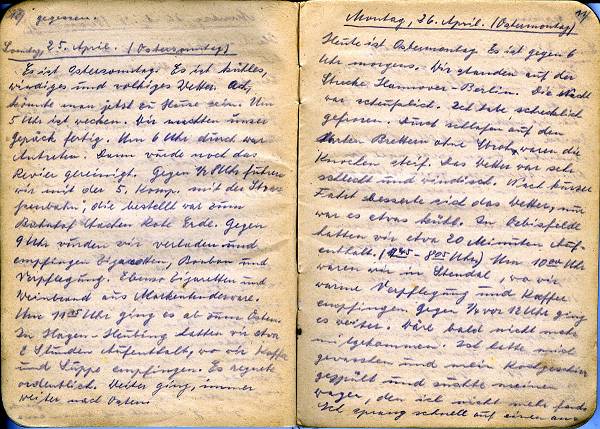 gegessen.
Sonntag, 25. April. (Ostersonntag)
Es ist Ostersonntag. Es ist kühles,
windiges und wolkiges Wetter. Ach,
könnte man jetzt zu Hause sein. Um
5 Uhr ist wecken. Wir machten unser
Gepäck fertig. Um 6 Uhr durch war
Antreten. Dann wurde noch das
Revier gereinigt. Gegen 1/2 8 Uhr fuhren
wir mit der 5. Komp. mit der Stras-
senbahn, die bestellt war zum
Bahnhof Aachen Rote Erde. Gegen
9 Uhr wurden wir verladen und
empfingen Zigaretten, Bonbon und
Verpflegung. Ebenso Zigaretten und
Weinbrand aus Marketenderware.
Um 11 35 Uhr ging es ab zum Osten.
In Hagen - Heubing hatten wir etwa
2 Stunden Aufenthalt, wo wir Kaffe
und Suppe empfingen. Es regnete
ordentlich. Weiter ging, immer
weiter nach Osten.
Montag, 26. April. (Ostermontag)
Heute ist Ostermontag. Es ist gegen 6
Uhr morgens. Wir standen auf der
Strecke Hannover-Berlin. Die Nacht
war scheußlich. Ich habe schrecklich
gefroren. Durch schlafen auf den
harten Brettern ohne Stroh, waren die
Knochen steif. Das Wetter war sehr
schlecht und windisch. Nach kurzer
Fahrt besserte sich das Wetter, nur
war es etwas kühl. In Oebisfelde
hatten wir etwa 20 Minuten Auf-
enthalt. (7 45 - 8 05 Uhr) Um 10 00 Uhr
waren wir in Stendal, wo wir
warme Verpflegung und Kaffee
empfingen. Gegen 1/4 vor 12 Uhr ging
es weiter. Wäre bald nicht mehr
mitgekommen. Ich hatte mich
gewaschen und mein Kochgeschirr
gespült und suchte meinen
Wagen, den ich nicht mehr fand.
Ich sprang schnell auf einen an-